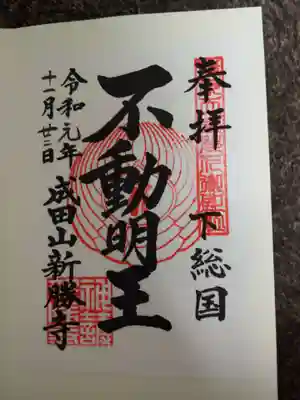 奉拝 下総国
不動明王
成田山新勝寺
令和元年
十一月廿三日